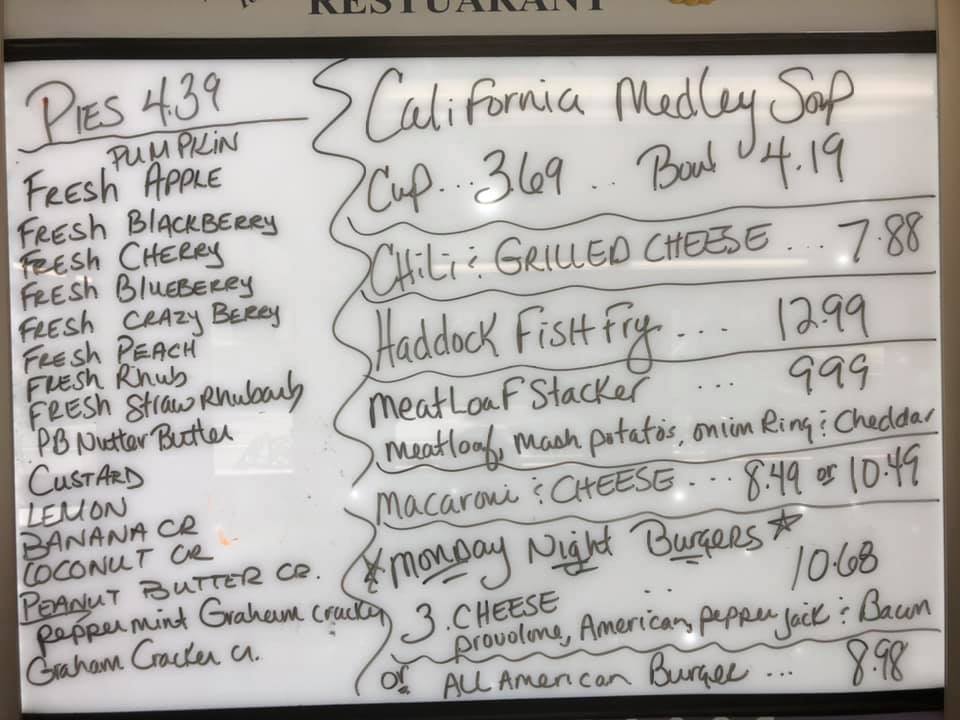 RESTUARANT
PIES 4.39
PUMPKIN
FRESH APPLE
FRESH BLACKBERRY
FRESH CHERRY
FRESH BLUEBERRY
FRESH CRAZY BERRY
FRESH PEACH
FRESH Rhub
FRESH Straw Rhubarb
PB Nutter Butter
CUSTARD
LEMON
BANANA CR
COCONUT CR
PEANUT BUTTER CR.
peppermint Graham cracker
Graham Cracker cr.
California Medley Soup
Cup... 3.69 .. Bowl 4.19
CHiLi & GRILLED CHEESE ... 7.88
Haddock Fish Fry ... 12.99
meatLoaf Stacker ... 9.99
meatloaf, mash potatos, onion Ring & Cheddar
macaroni & CHEESE ... 8.49 or 10.49
*Monday Night Burgers*
3 CHEESE .. 10.68
provolone, American, pepper jack & Bacon
or ALL American Burger ... 8.98